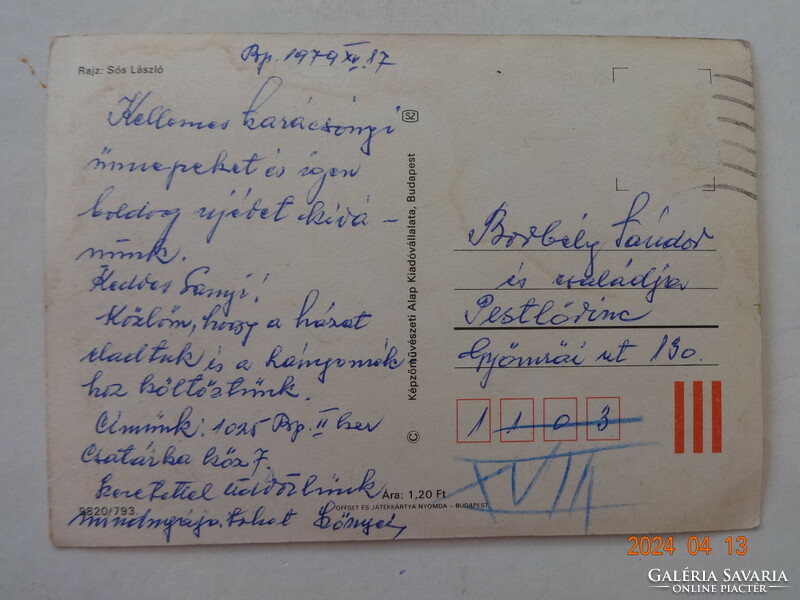 Rajz: Sós László
Bp. 1979 XII. 17
Kellemes karácsonyi
ünnepeket és igen
boldog újévet kívá-
nunk.
Kedves Sanyi!
Közlöm, hogy a házat
eladtuk és a lányomék
hoz költöztünk.
Címünk: 1025 Bp. II ker
Csatárka köz 7.
Szeretettel üdvözlünk
mindnyájatokat
SZ
Képzőművészeti Alap Kiadóvállalata, Budapest
©
Borbély Sándor
és családja
Pestlőrinc
Gyömrői ut 130.
1 1 0 3
XVIII
Ára: 1,20 Ft
9820/793.
OFFSET ÉS JÁTÉKKÁRTYA NYOMDA – BUDAPEST
2024 04 13
GALÉRIA SAVARIA
ONLINE PIACTÉR